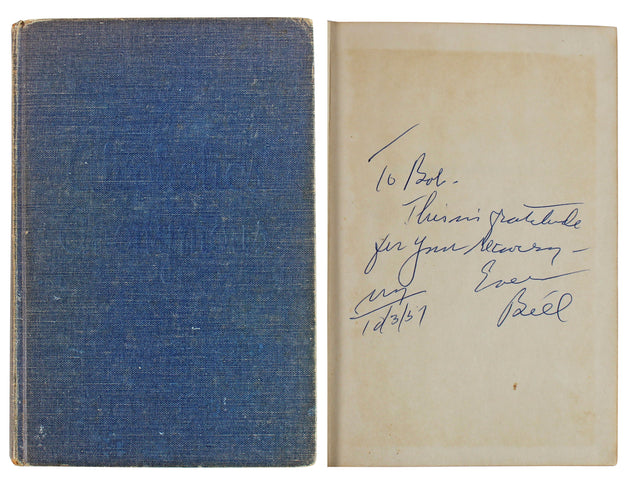 To Bob-
This in gratitude
for your recovery -
Ever
Bill
NY
10/3/57